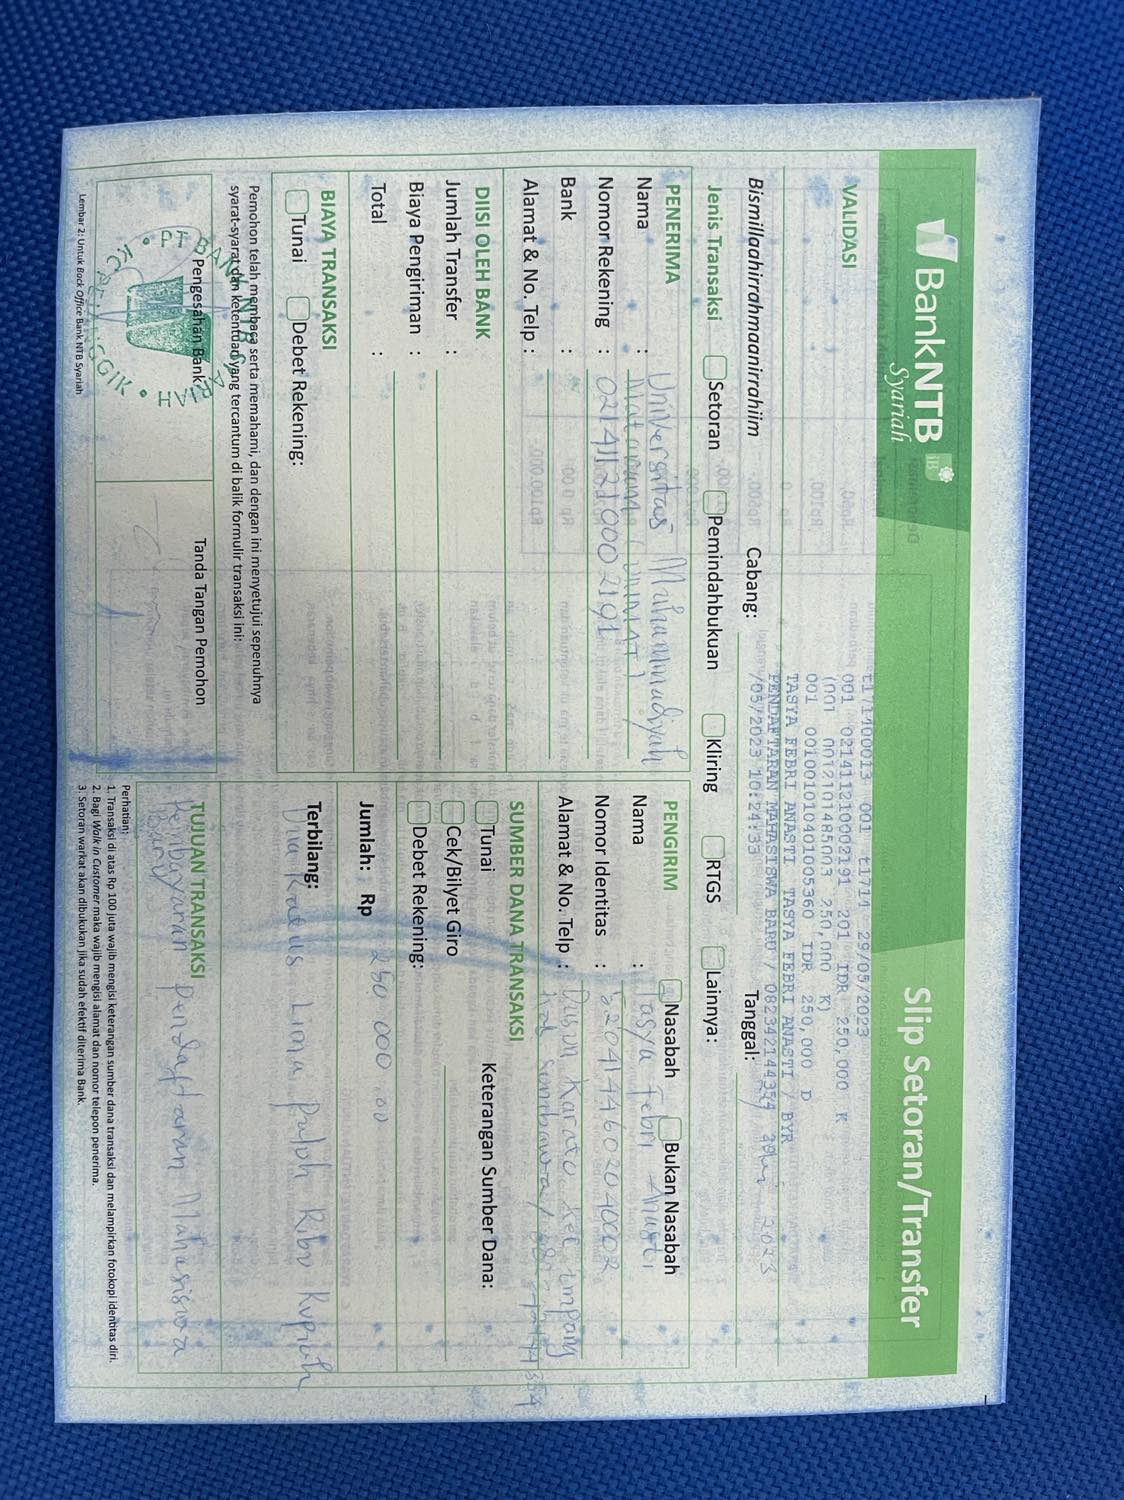 BankNTB
Syariah
iB
Slip Setoran/Transfer
VALIDASI
t171400013 001 t1714 29/05/2023
001 021411210002191 201 IDR 250,000 K
(001 0012101485003 250,000 K)
001 001001010401005360 IDR 250,000 D
TASYA FEBRI ANASTI TASYA FEBRI ANASTI / BYR
PENDAFTARAN MAHASISWA BARU / 082342144354
/05/2023 10:24:33
Bismillaahirrahmaanirrahiim
Cabang:
Tanggal: 29 2023
Jenis Transaksi
Setoran
Pemindahbukuan
Kliring
RTGS
Lainnya:
PENERIMA
Nama : Universitas Muhammadiyah
Mataram (UMMAT)
Nomor Rekening : 021411210002191
Bank :
Alamat & No. Telp :
PENGIRIM
Nasabah
Bukan Nasabah
Nama : Tasya Febri Anasti
Nomor Identitas : 5204144602040002
Alamat & No. Telp : Dusun Karato kec. Empang
kab sumbawa/082342144354
DIISI OLEH BANK
Jumlah Transfer :
Biaya Pengiriman :
Total :
SUMBER DANA TRANSAKSI
Tunai
Cek/Bilyet Giro
Debet Rekening:
Keterangan Sumber Dana:
BIAYA TRANSAKSI
Tunai
Debet Rekening:
Jumlah: Rp 250 000 .00
Terbilang:
Dua Ratus Lima Puluh Ribu Rupiah
Pemohon telah membaca serta memahami, dan dengan ini menyetujui sepenuhnya
syarat-syarat dan ketentuan yang tercantum di balik formulir transaksi ini:
Pengesahan Bank
PT BANK NTB SYARIAH
Tanda Tangan Pemohon
TUJUAN TRANSAKSI
Pembayaran Pendaftaran Mahasiswa
Baru
Perhatian:
1. Transaksi di atas Rp 100 juta wajib mengisi keterangan sumber dana transaksi dan melampirkan fotokopi identitas diri.
2. Bagi Walk in Customer maka wajib mengisi alamat dan nomor telepon penerima.
3. Setoran warkat akan dibukukan jika sudah efektif diterima Bank.
Lembar 2: Untuk Back Office Bank NTB Syariah